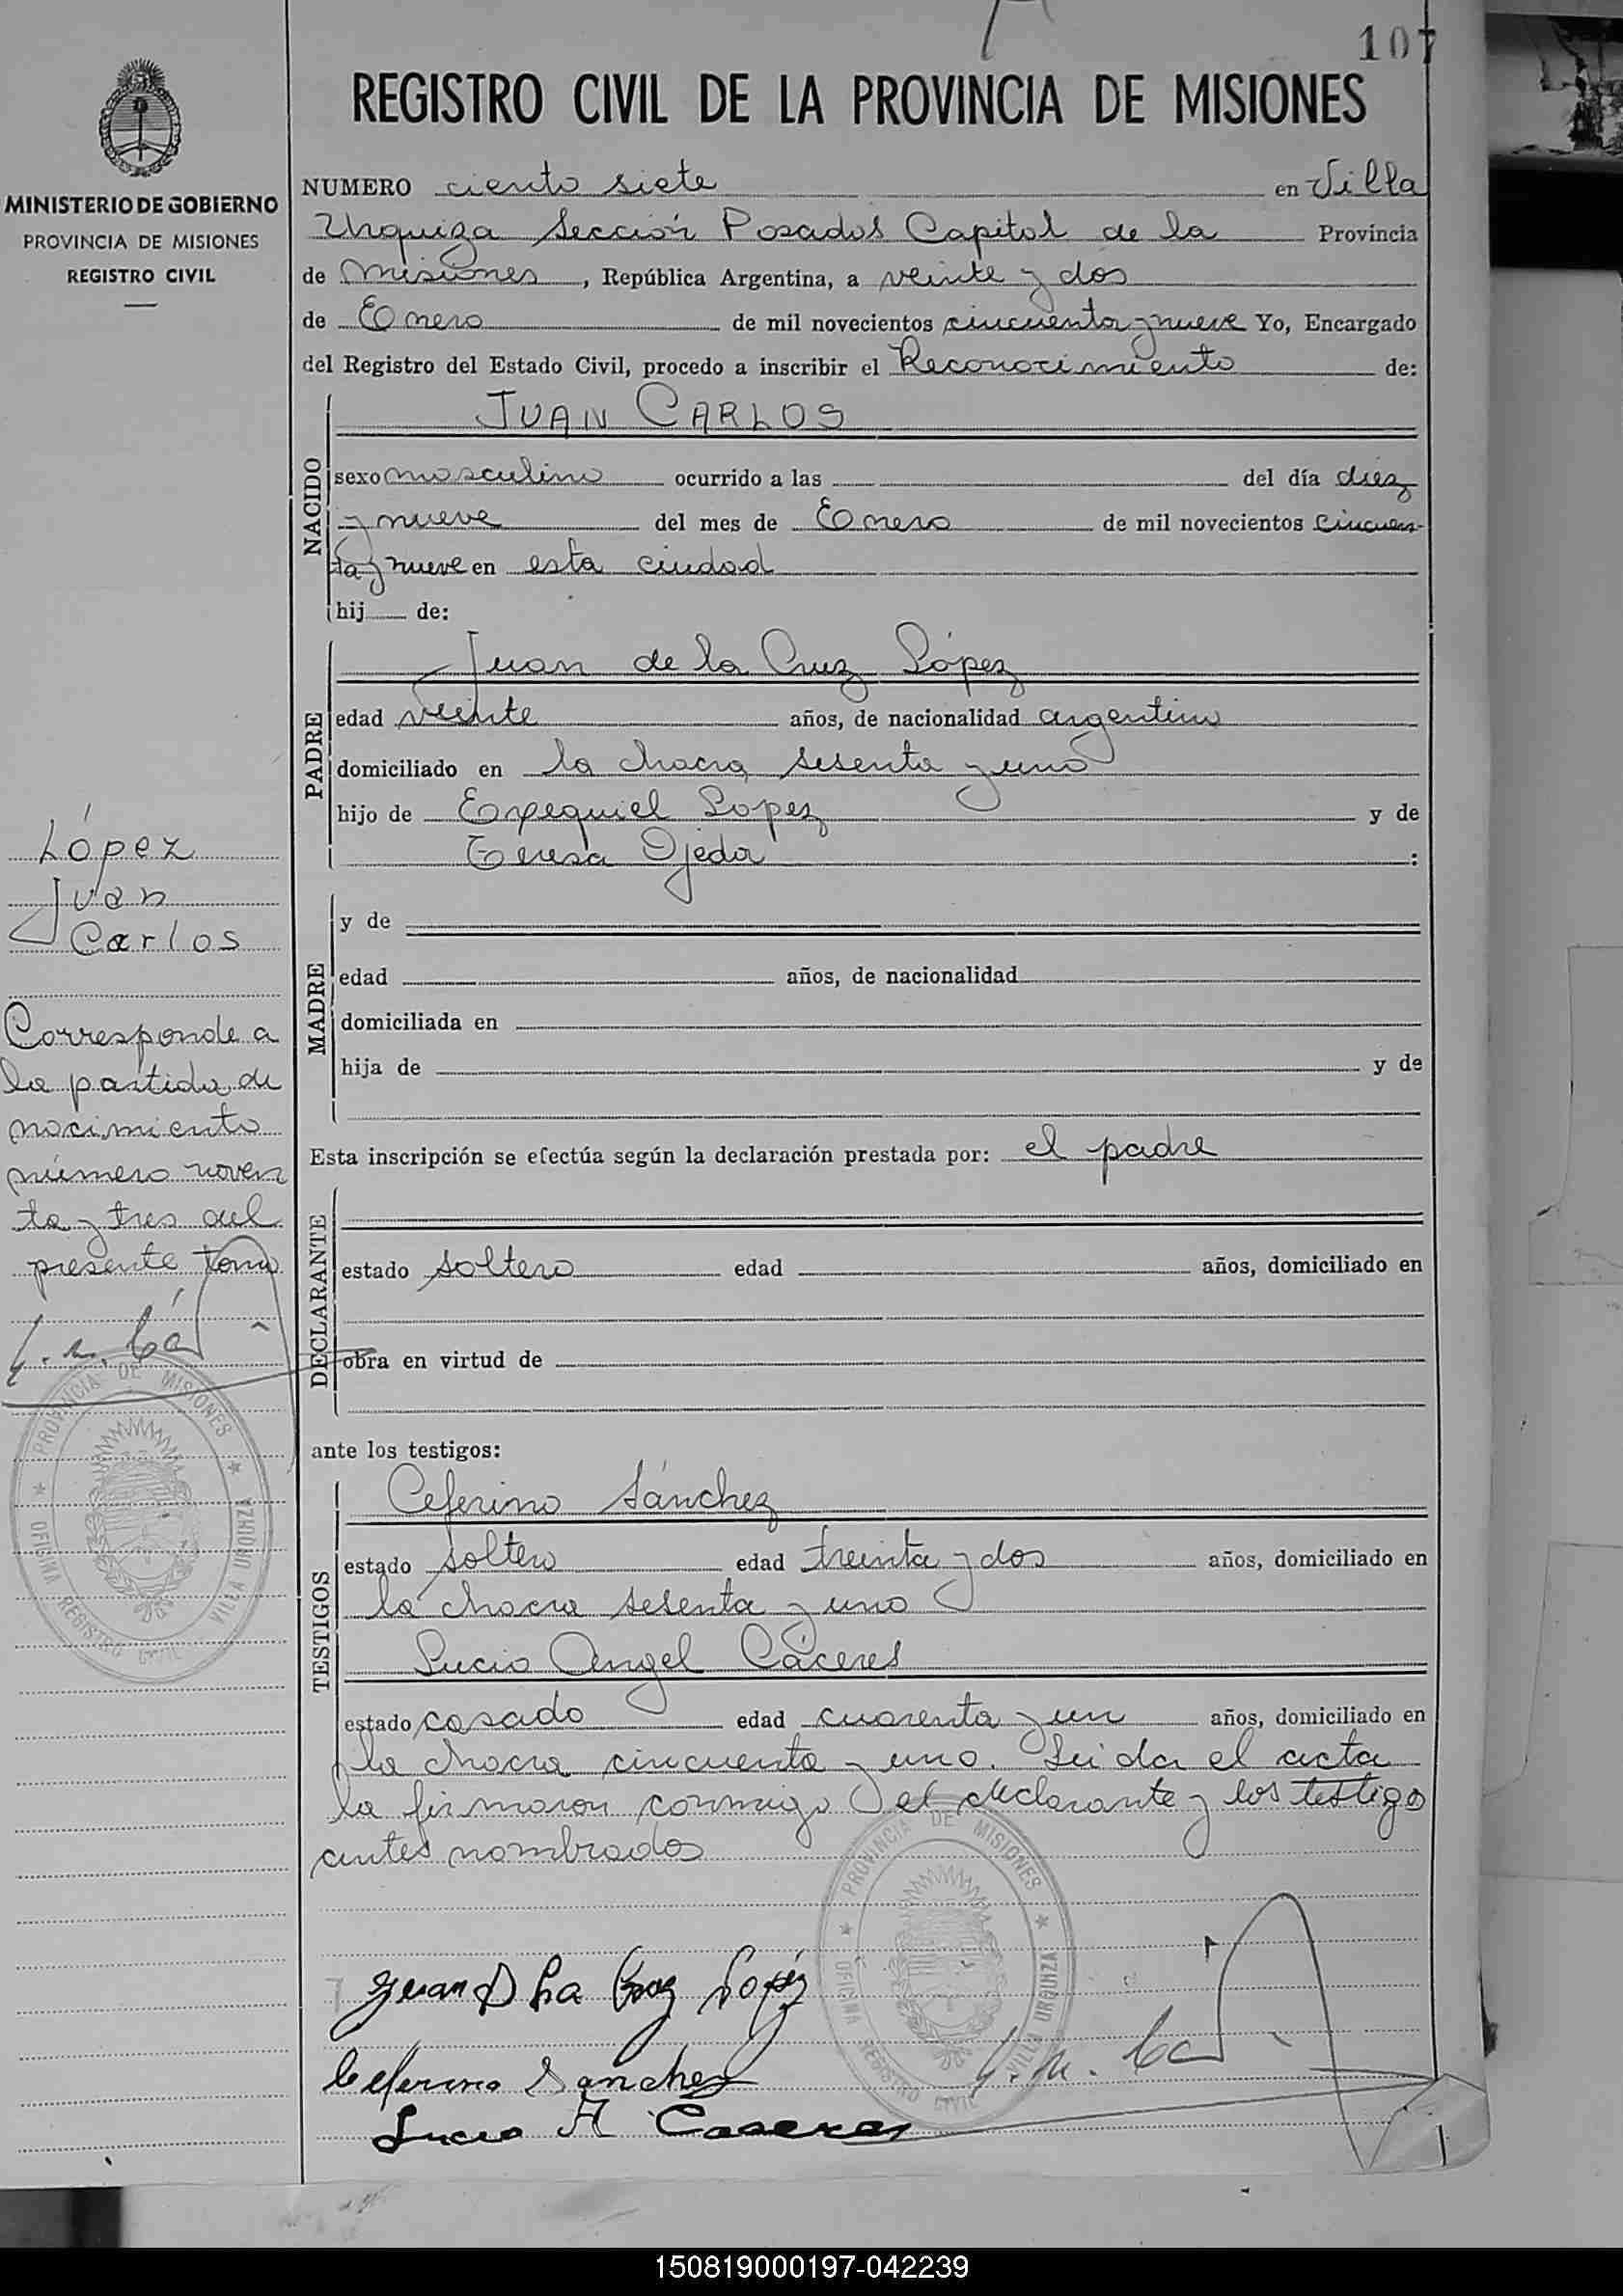 107
REGISTRO CIVIL DE LA PROVINCIA DE MISIONES
MINISTERIO DE GOBIERNO
PROVINCIA DE MISIONES
REGISTRO CIVIL
NUMERO ciento siete en Villa
Urquiza Sección Posadas Capital de la Provincia
de Misiones, República Argentina, a veinte y dos
de Enero de mil novecientos cincuenta y nueve Yo, Encargado
del Registro del Estado Civil, procedo a inscribir el Reconocimiento de:
NACIDO
JUAN CARLOS
sexo masculino ocurrido a las del día diez
y nueve del mes de Enero de mil novecientos cincuen-
ta y nueve en esta ciudad
hij de:
PADRE
Juan de la Cruz López
edad veinte años, de nacionalidad argentino
domiciliado en la chacra sesenta y uno
hijo de Exequiel Lopez y de
Teresa Ojeda :
MADRE
y de
edad años, de nacionalidad
domiciliada en
hija de y de
Esta inscripción se efectúa según la declaración prestada por: el padre
DECLARANTE
estado soltero edad años, domiciliado en
obra en virtud de
ante los testigos:
TESTIGOS
Ceferino Sánchez
estado soltero edad treinta y dos años, domiciliado en
la chacra sesenta y uno
Lucio Angel Cáceres
estado casado edad cuarenta y un años, domiciliado en
la chacra cincuenta y uno. Leida el acta
la firmaron conmigo el declarante y los testigos
antes nombrados
Juan D La Cruz López
Ceferino Sanchez
Lucio A Caseres
PROVINCIA DE MISIONES
OFICINA REGISTRO CIVIL VILLA URQUIZA
López
Juan
Carlos
Corresponde a
la partida de
nacimiento
número noven
ta y tres del
presente tomo
PROVINCIA DE MISIONES
OFICINA REGISTRO CIVIL VILLA URQUIZA
150819000197-042239